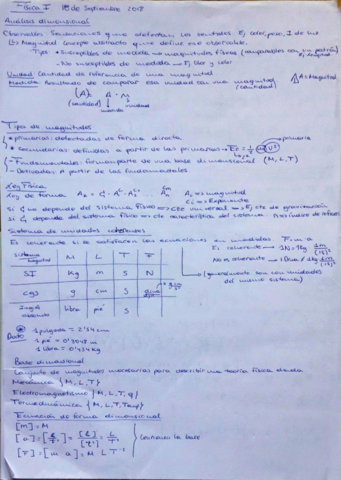 Física I 18 de Septiembre 2018
Análisis dimensional
Observación: Sensaciones que afectan los sentidos. Ej color, peso, I de luz
↳ Magnitud concepto abstracto que define ese observable.
Tipos • Susceptibles de medirse → magnitudes físicas (comparables con un patrón)
Ej. longitud
• No susceptibles de medida → Ej olor y color
Unidad: Cantidad de referencia de una magnitud
Medida: Resultado de comparar esa unidad con una magnitud
(cantidad)
Tipo de magnitudes
• primarias: detectadas de forma directa
primaria
• secundarias: definidas a partir de las primarias → Ec = 1/2 m v²
- Fundamentales: forman parte de una base dimensional (M, L, T)
- Derivadas: A partir de las fundamentales
Ley Física
Ley de forma
Ai → magnitud
Ci → Exponente
Si no depende del sistema físico → Cte universal → Ej cte de gravitación
Si depende del sistema físico → cte característica del sistema
índice de
Sistema de unidades coherentes
Es coherente si se satisfacen las ecuaciones en medidas F = m·a
Es coherente → 1N = 1kg 1m/(1s)²
No es coherente
(generalmente son con unidades del mismo sistema)
Sistema Magnitud M L T F
SI Kg m S N
cgs g cm S
Inglés libra pié S
Dato 1 pulgada = 2'54 cm
1 pié = 0'3048 m
1 libra = 0'454 Kg
Base dimensional
Conjunto de magnitudes necesarias para describir una teoría física dada
Mecánica {M, L, T}
Electromagnetismo {M, L, T, q}
Termodinámica {M, L, T, Temp}
Ecuación de forma dimensional
[m] = M
la base
[F] = [m·a] = M L T⁻²